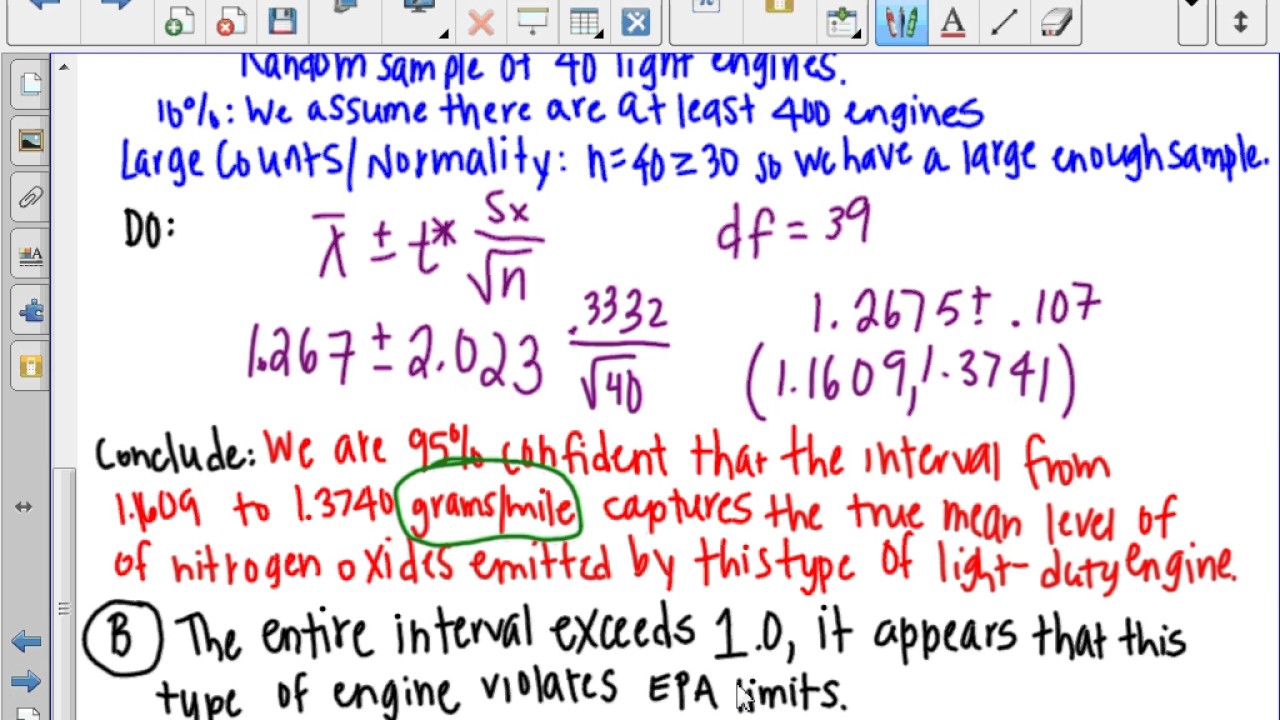 Random sample of 40 light engines.
10%: We assume there are at least 400 engines
Large Counts/Normality: n=40≥30 so we have a large enough sample.
DO: x̄ ± t* Sx/√n df = 39
1.267 ± 2.023 .3332/√40 1.2675 ± .107
(1.1609, 1.3741)
Conclude: We are 95% confident that the interval from
1.1609 to 1.3740 grams/mile captures the true mean level of
of nitrogen oxides emitted by this type of light-duty engine.
B The entire interval exceeds 1.0, it appears that this
type of engine violates EPA limits.